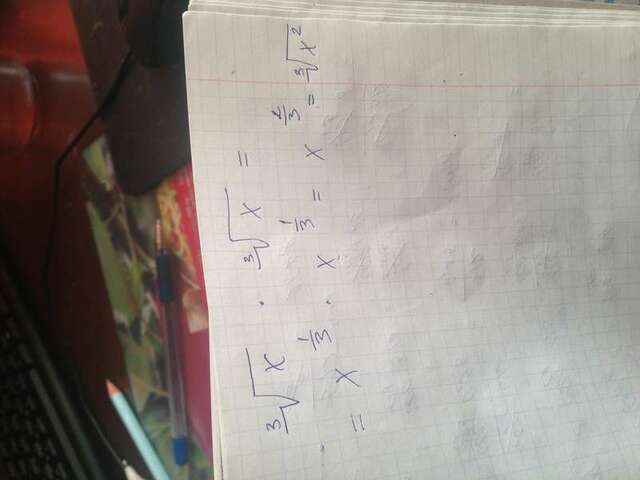 ∛x · ∛x =
= x^(1/3) · x^(1/3) = x^(2/3) = ∛x²